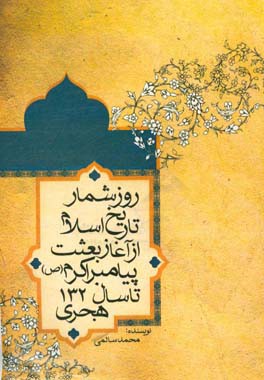 روزشمار
تاریخ اسلام
از آغاز بعثت
پیامبر اکرم (ص)
تا سال ۱۳۲
هجری
نویسنده:
محمد سالمی